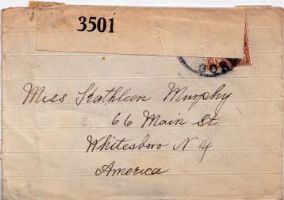 3501
Miss Kathleen Murphy
66 Main St
Whitesboro N Y
America